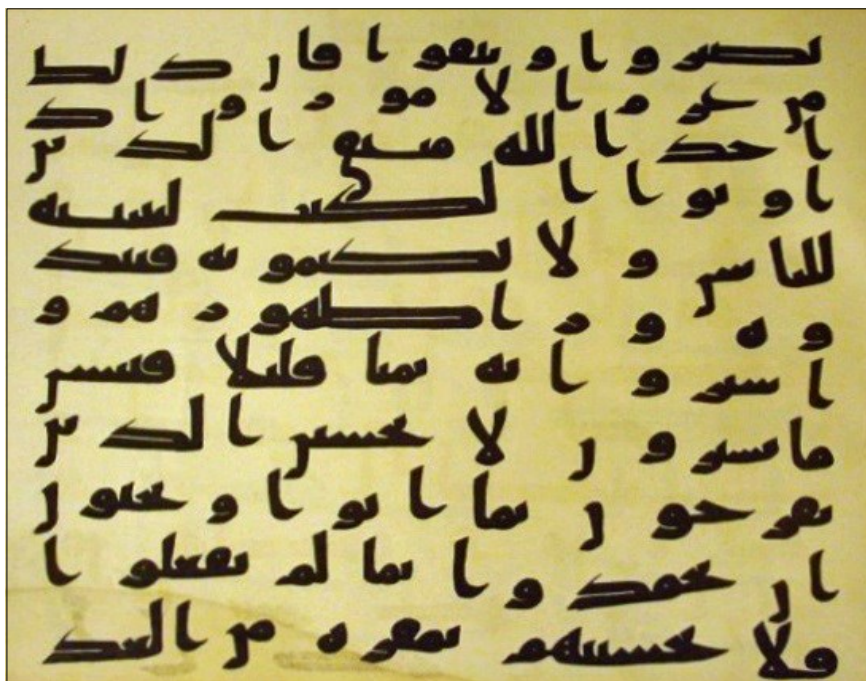 تصبروا وتتقوا فان ذلك
من عزم الامور واذ
اخذ الله ميثق الذين
اوتوا الكتب لتبيننه
للناس ولا تكتمونه فنبذ
وه ورا ظهورهم و
اشتروا به ثمنا قليلا فبئس
ما يشترون لا تحسبن الذين
يفرحون بما اتوا ويحبون
ان يحمدوا بما لم يفعلوا
فلا تحسبنهم بمفزة من العذ